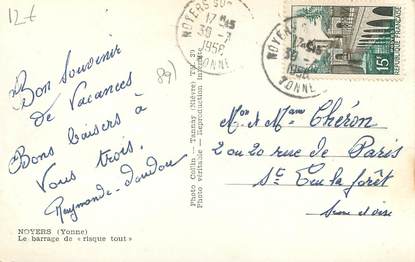 12 €
89)
NOYERS SUR
17 H 45
30 - 7
1958
YONNE
NOYERS
17 H 45
30 - 7
1958
YONNE
15F
REPUBLIQUE FRANÇAISE
Bon Souvenir
de Vacances
Bons baisers à
Vous trois.
Raymonde - Doudou
NOYERS (Yonne)
Le barrage de « risque tout »
Photo Collin — Tannay (Nièvre) Tél. 29
Photo véritable — Reproduction interdite
Mon. et Mame Chéron
2 ou 20 rue de Paris
St Leu la forêt
Seine et Oise